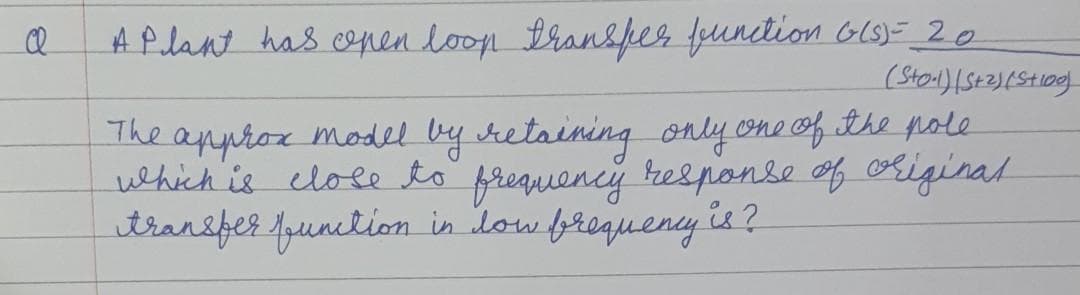 Q A Plant has open loop transfer function G(s) = 20
(S+0.1)(S+2)(S+100)
The approx model by retaining only one of the pole
which is close to frequency response of original
transfer function in low frequency is?